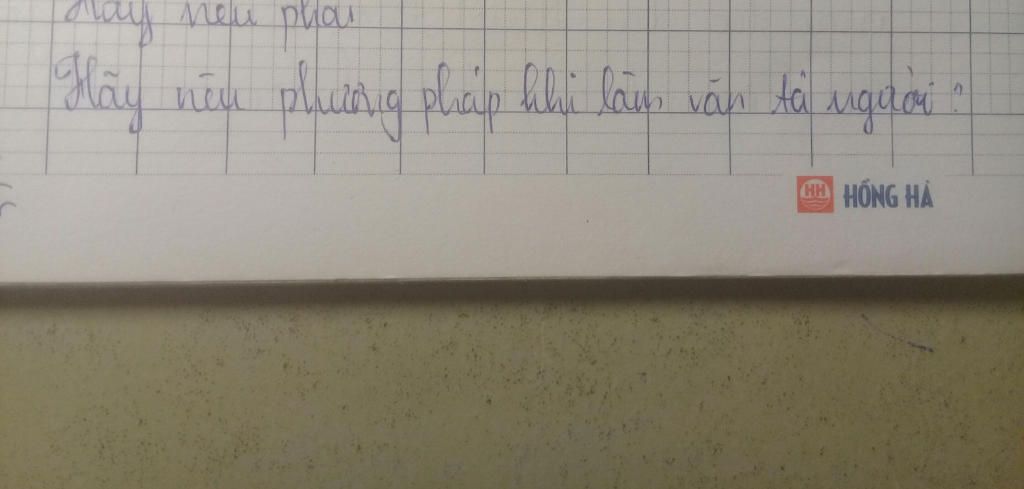 Hãy nêu phươ
Hãy nêu phương pháp khi làm văn tả người?
HH HỒNG HÀ